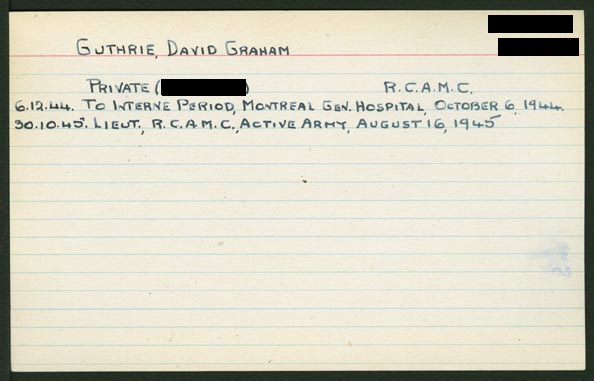 GUTHRIE, DAVID GRAHAM
PRIVATE ( ) R.C.A.M.C.
6.12.44. TO INTERNE PERIOD, MONTREAL GEN. HOSPITAL, OCTOBER 6 1944.
30.10.45. LIEUT., R.C.A.M.C., ACTIVE ARMY, AUGUST 16, 1945